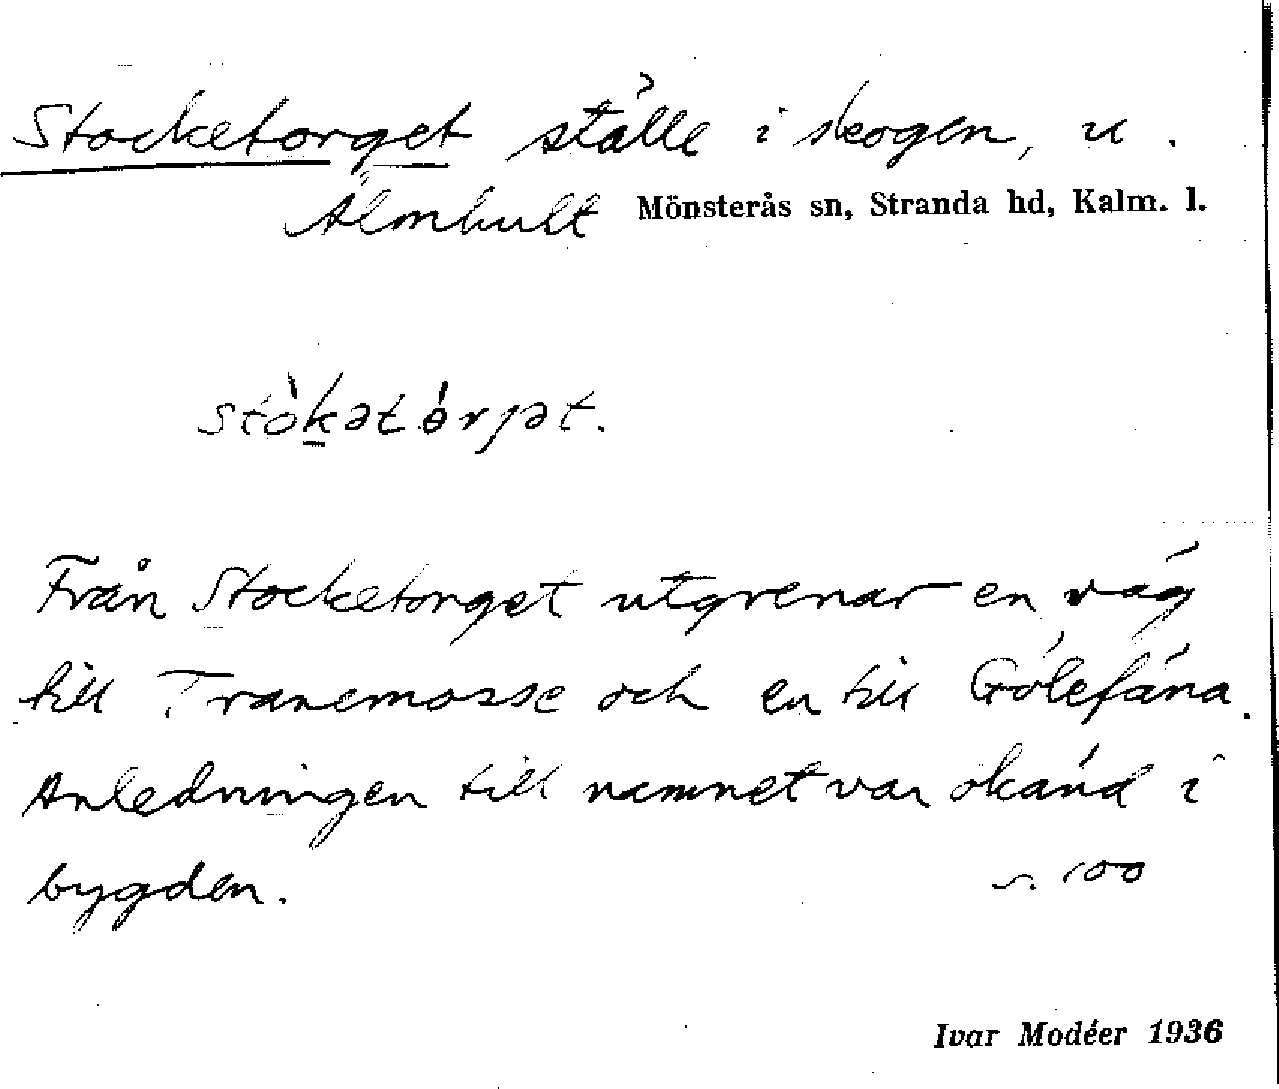 Stocketorget ställe i skogen, u.
Älmhult Mönsterås sn, Stranda hd, Kalm. l.
stòkatórjət.
Från Stocketorget utgrenar en väg
till Tranemosse och en till Gölefåna.
Anledningen till namnet var okänd i
bygden. s. 100
Ivar Modéer 1936